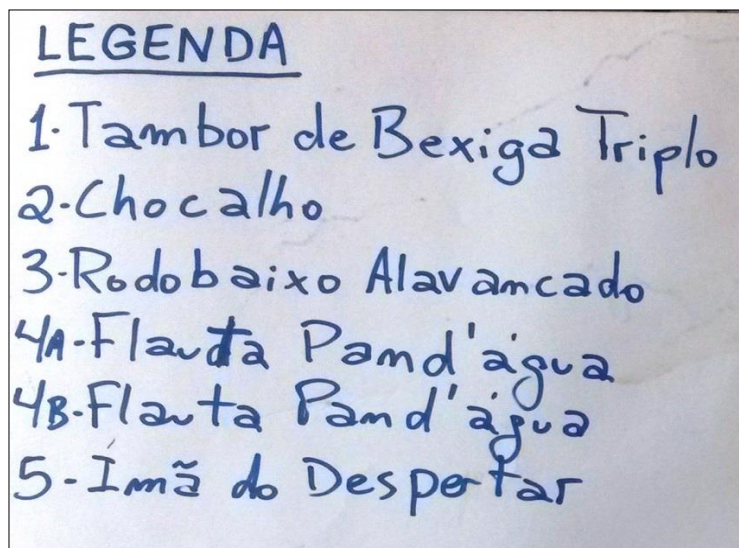 LEGENDA
1-Tambor de Bexiga Triplo
2-Chocalho
3-Rodobaixo Alavancado
4A-Flauta Pand'água
4B-Flauta Pand'água
5-Ímã do Despertar